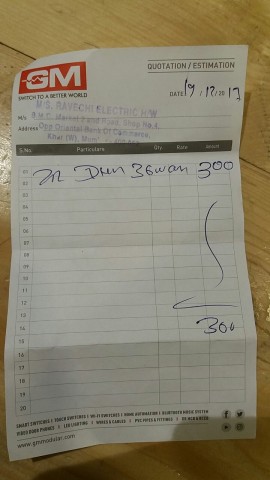 GM
SWITCH TO A BETTER WORLD
QUOTATION / ESTIMATION
DATE 19/12/2017
M/s.
M/S. RAVECHI ELECTRIC H/W
Address
Opp. Oriental Bank Of Commerce,
S.No. Particulars Qty. Rate Amount
01 300
02
03
04
05
06
07
08
09
10
11
12
13
14 300
15
16
17
18
19
20
SMART SWITCHES | TOUCH SWITCHES | WI-FI SWITCHES | HOME AUTOMATION | BLUETOOTH MUSIC SYSTEM
VIDEO DOOR PHONES | LED LIGHTING | WIRES & CABLES | PVC PIPES & FITTINGS
www.gmmodular.com